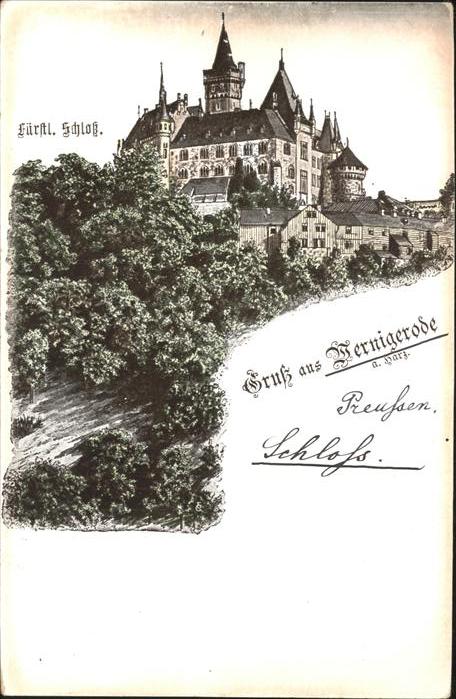 Fürstl. Schloß.
Gruß aus Wernigerode
a. Harz.
Preußen.
Schloß.